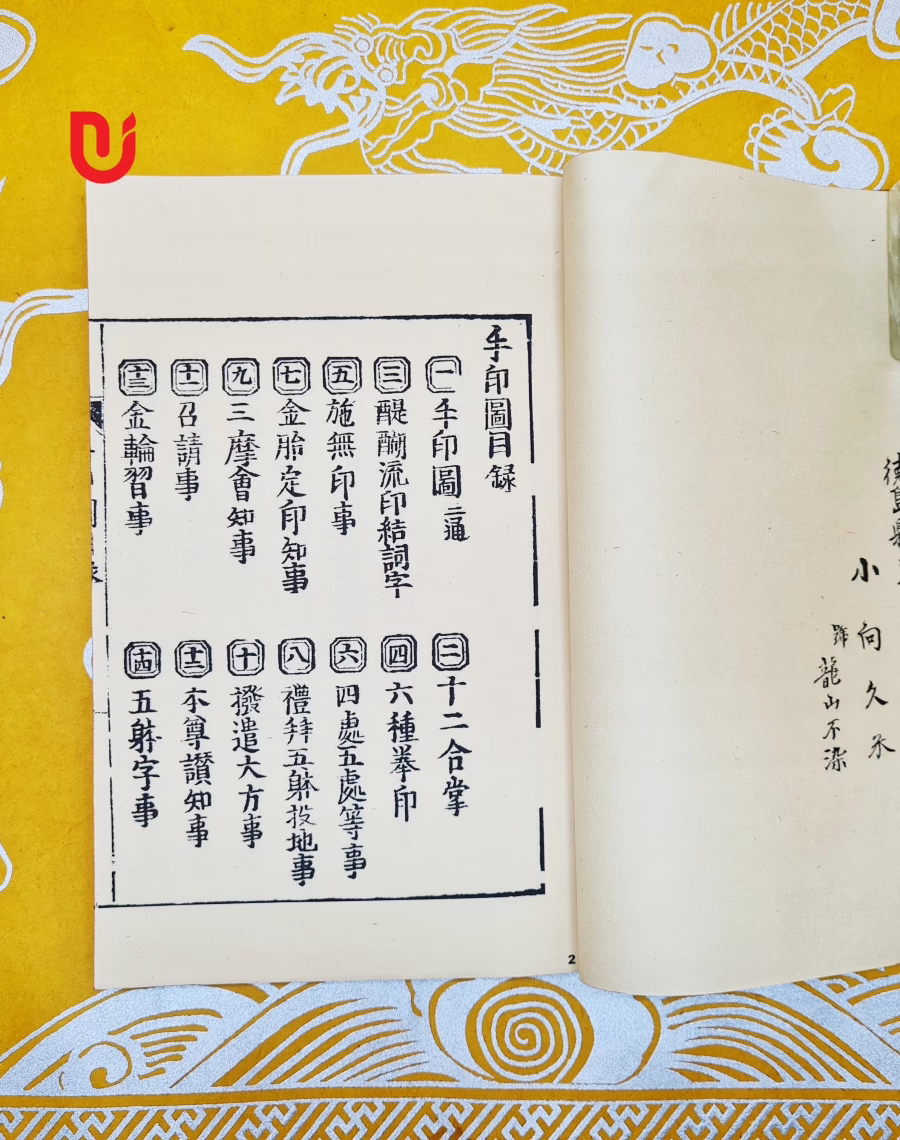 手印圖目録
一 手印圖 二通
二 十二合掌
三 醍醐流印結詞字
四 六種拳印
五 施無印事
六 四處五處等事
七 金胎定印知事
八 禮拜五躰投地事
九 三摩會知事
十 撥遣大方事
十一 召請事
十二 本尊讃知事
十三 金輪習事
十四 五躰字事
2
德島縣
小向久
號龍山不染